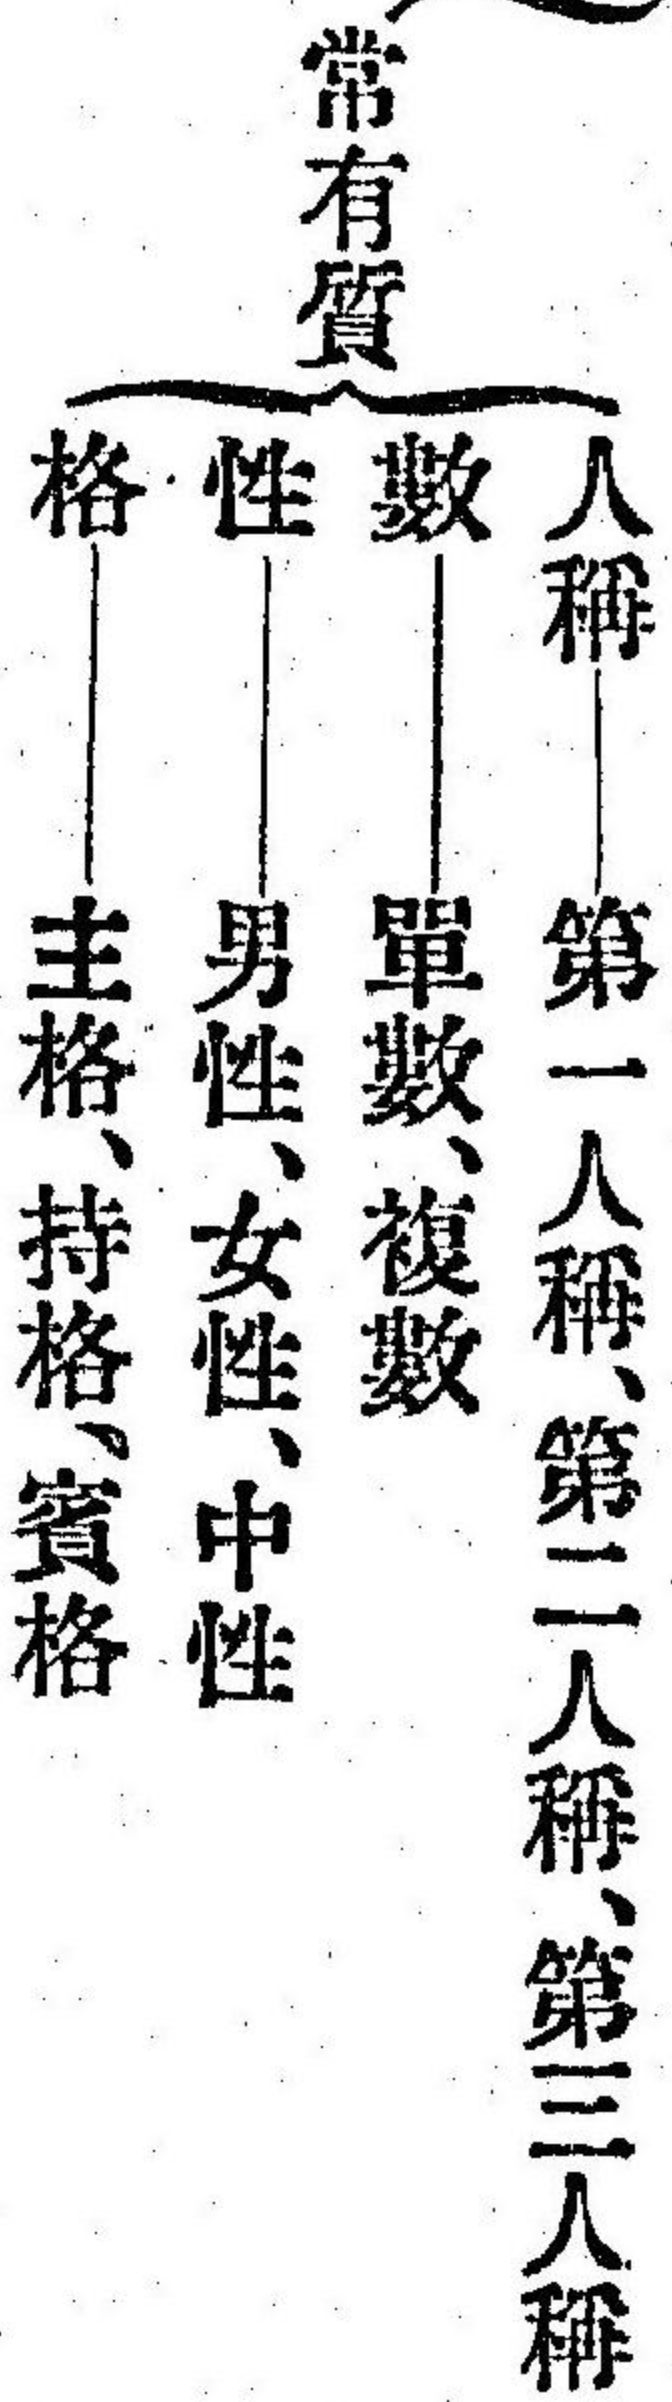 常有質
人稱――第一人稱、第二人稱、第三人稱
數――單數、複數
性――男性、女性、中性
格――主格、持格、賓格